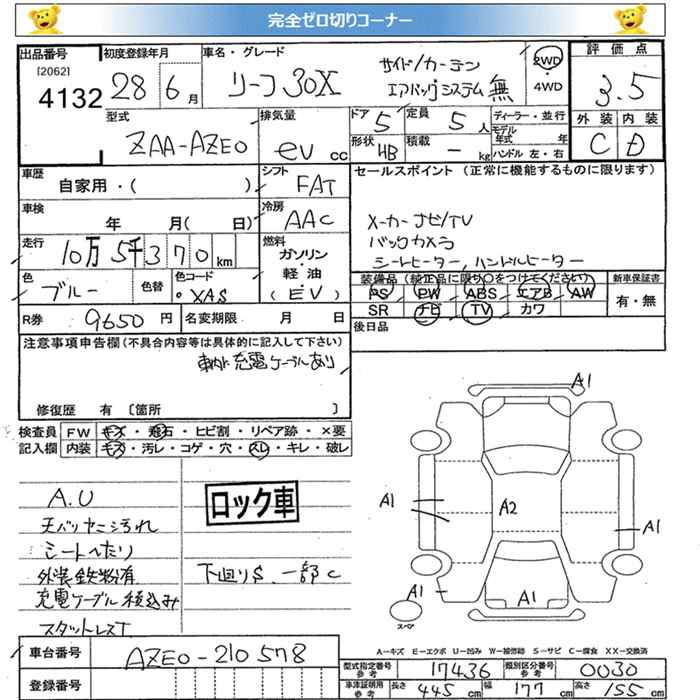 完全ゼロ切りコーナー
出品番号 初度登録年月 車名・グレード 評価点
[2062]
4132 28 6月 リーフ 30X サイド/カーテン エアバッグシステム 無 2WD・4WD 3.5
型式 排気量 ドア 5 定員 5人 ディーラー・並行 外装 内装
ZAA-AZE0 ev cc 形状 HB 積載 - kg モデル年式 年 C D
ハンドル 左・右
車歴 自家用・( ) シフト FAT セールスポイント(正常に機能するものに限ります)
車検 年 月( 日) 冷房 AAC メーカーナビ/TV
走行 10万5千370km 燃料 ガソリン・軽油 (EV) バックカメラ
シートヒーター、ハンドルヒーター
色 ブルー 色替 色コード ・XAS 装備品(純正品に限り○をつけてください) 新車保証書
PS PW ABS エアB AW 有・無
SR ナビ TV カワ
R券 9650円 名変期限 月 日 後日品
注意事項申告欄(不具合内容等は具体的に記入して下さい)
車内に充電ケーブルあり
修復歴 有 [箇所 ]
検査員 FW キズ・飛石・ヒビ割・リペア跡・×要
記入欄 内装 キズ・汚レ・コゲ・穴・スレ・キレ・破レ
A1
A.U ロック車
天バリヤニ汚れ
シートへたり
外装鉄粉有 下廻りS.一部C
充電ケーブル積込み
スタットレスT
A1 A2 A1
A1 A1
スペア
A-キズ E-エクボ U-凹み W-補修跡 S-サビ C-腐食 XX-交換済
車台番号 AZE0-210578
登録番号
型式指定番号 参考 17436 類別区分番号 参考 0030
車庫証明用 参考 長さ 445cm 幅 177cm 高さ 155cm